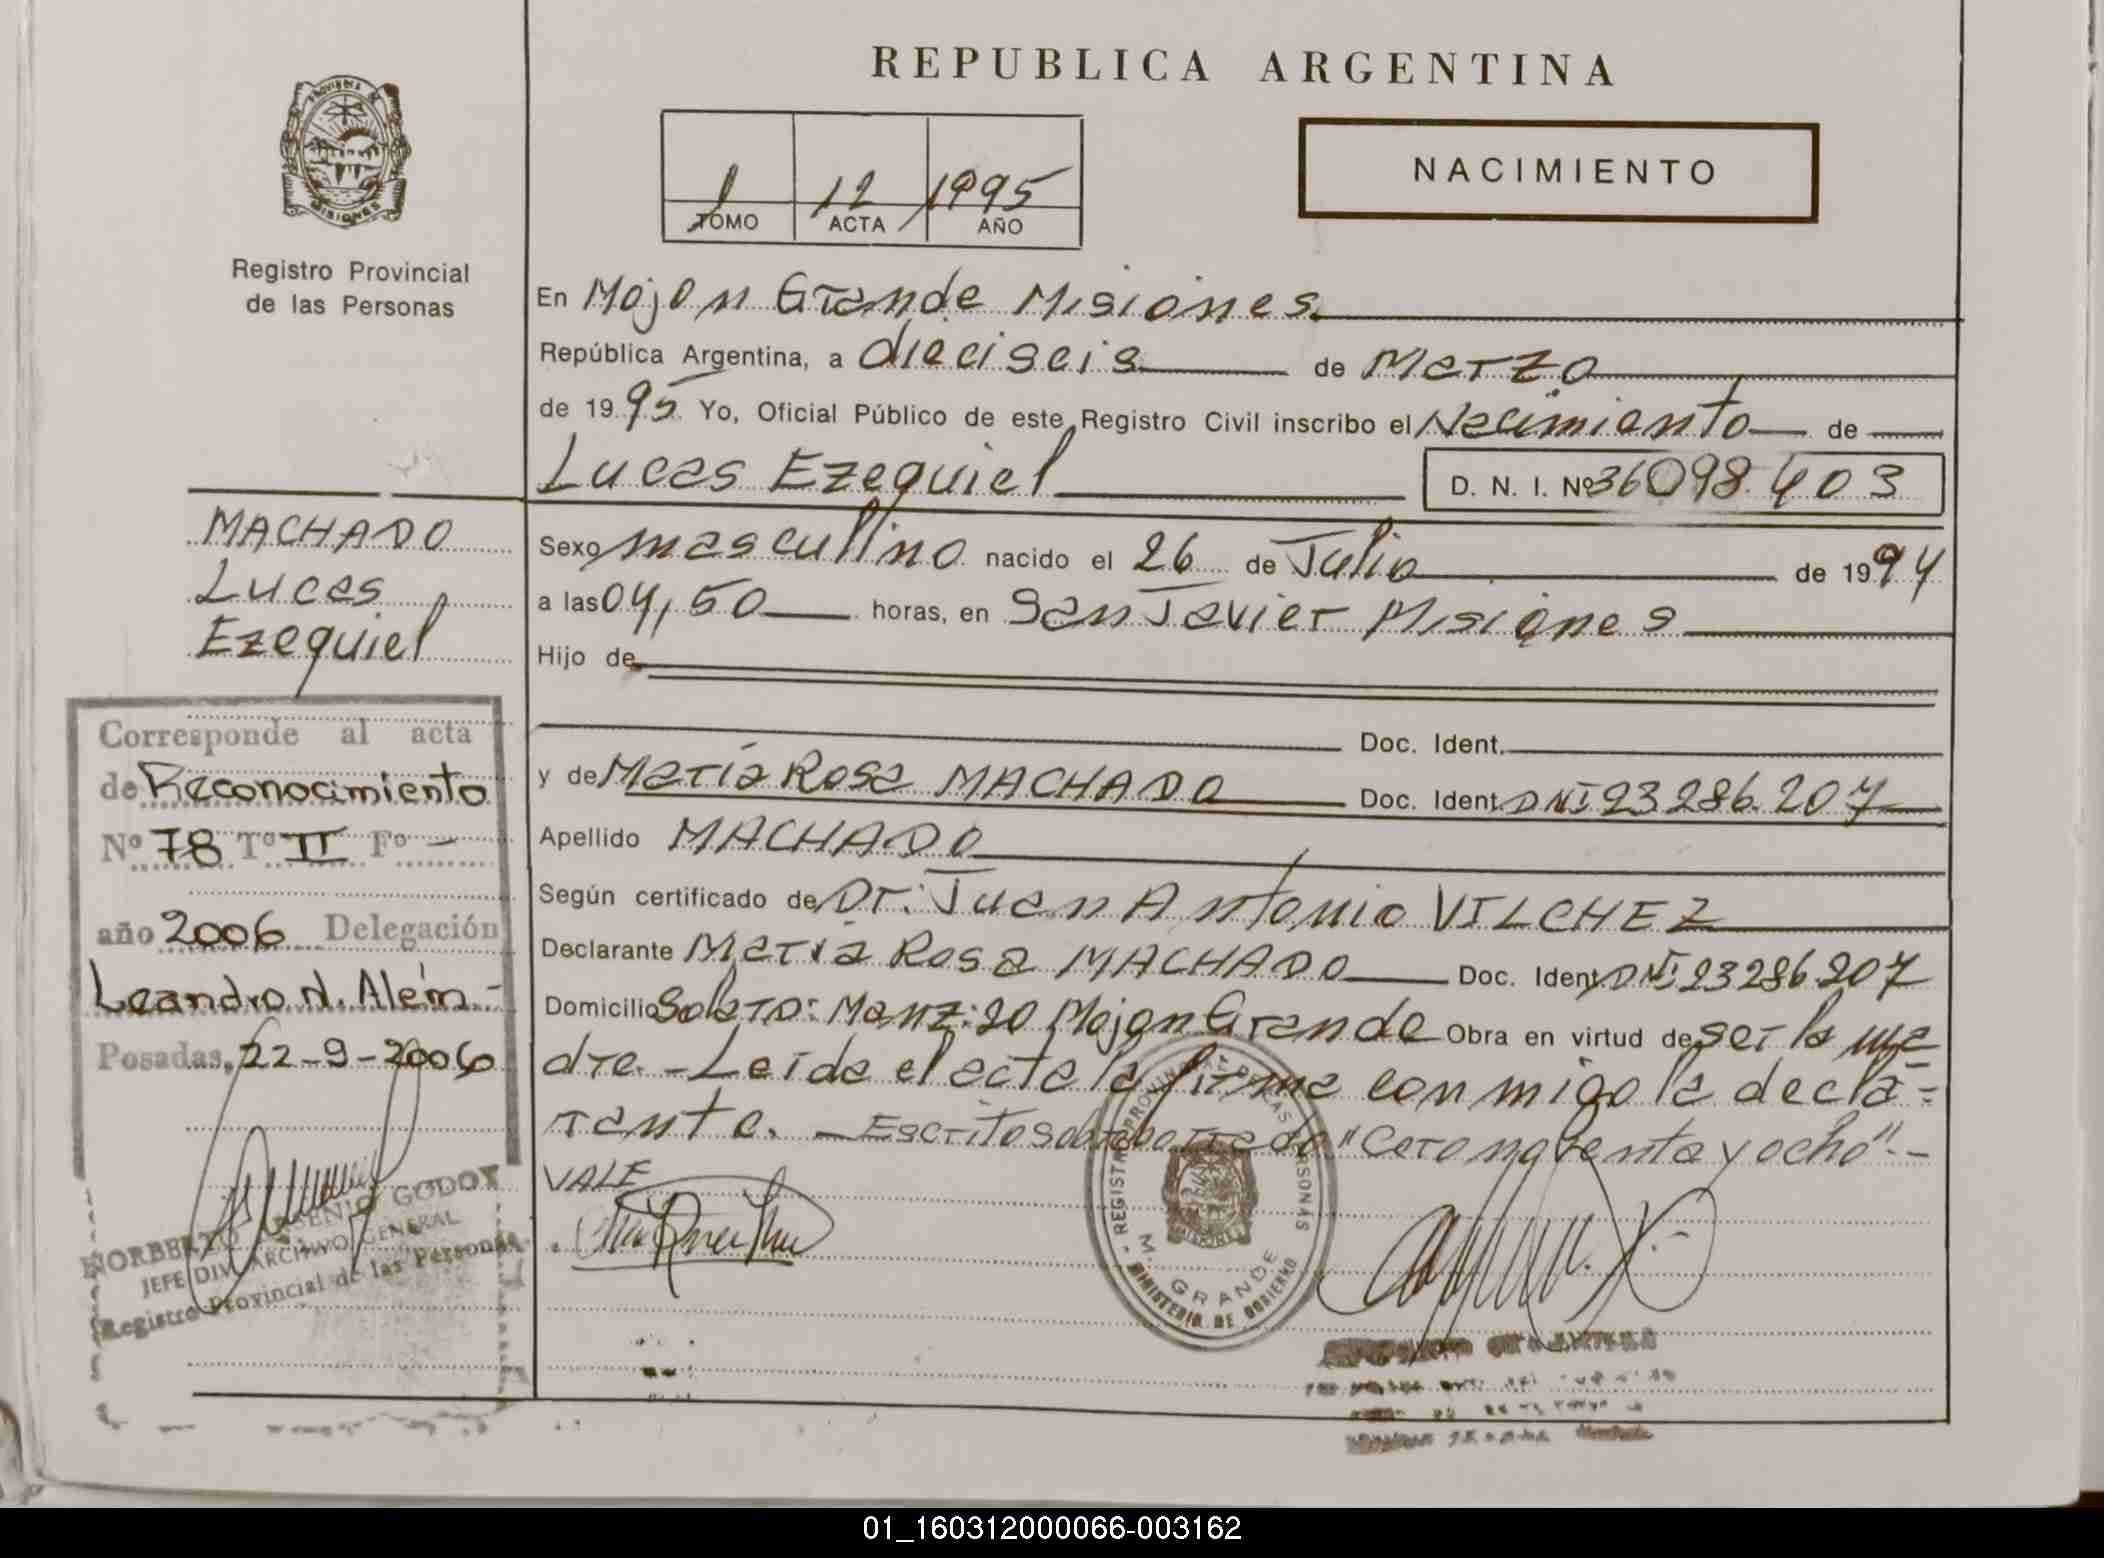 REPUBLICA ARGENTINA
PROVINCIA DE
MISIONES
Registro Provincial
de las Personas
1 12 1995
TOMO ACTA AÑO
NACIMIENTO
En Mojon Grande Misiones.
República Argentina, a dieciseis de Marzo
de 1995 Yo, Oficial Público de este Registro Civil inscribo el Nacimiento de
Lucas Ezequiel D. N. I. Nº 36098.403
MACHADO
Lucas
Ezequiel
Sexo masculino nacido el 26 de Julio de 1994
a las 04,50 horas, en San Javier Misiones
Hijo de
Doc. Ident.
y de María Rosa MACHADO Doc. Ident. DNI 23286.207
Apellido MACHADO
Según certificado de Dr: Juan Antonio VILCHEZ
Declarante María Rosa MACHADO Doc. Ident. DNI 23286207
Domicilio Solar TO: Manz: 20 Mojon Grande Obra en virtud de ser la ma
dre. - Leída el acta la firma conmigo la decla-
rante. - Escrito sobre borrado "Cero noventa y ocho". -
VALE
Corresponde al acta
de Reconocimiento
Nº 78 Tº II Fº -
año 2006 Delegación
Leandro N. Alem -
Posadas, 22-9-2006
NORBERTO ARSENIO GODOY
JEFE DIV. ARCHIVO GENERAL
Registro Provincial de las Personas
REGISTRO PROVINCIAL DE LAS PERSONAS
M. GRANDE
MINISTERIO DE GOBIERNO
MISIONES
01_160312000066-003162